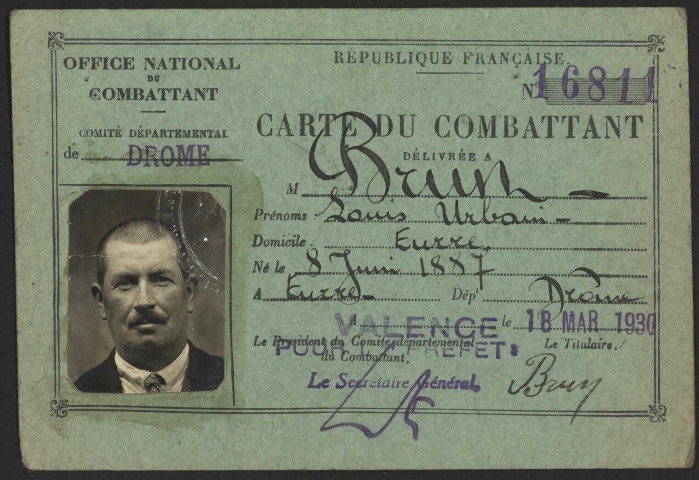 OFFICE NATIONAL
DU
COMBATTANT
COMITÉ DÉPARTEMENTAL
de DROME
RÉPUBLIQUE FRANÇAISE.
N° 16811
CARTE DU COMBATTANT
DÉLIVRÉE A
M Brun
Prénoms Louis Urbain
Domicile : Eurre
Né le 8 Juin 1887
A Eurre Dépt Drôme
A VALENCE le 18 MAR 1930
Le Président du Comité départemental
du Combattant,
POUR LE PREFET :
Le Secrétaire Général
Le Titulaire,
Brun